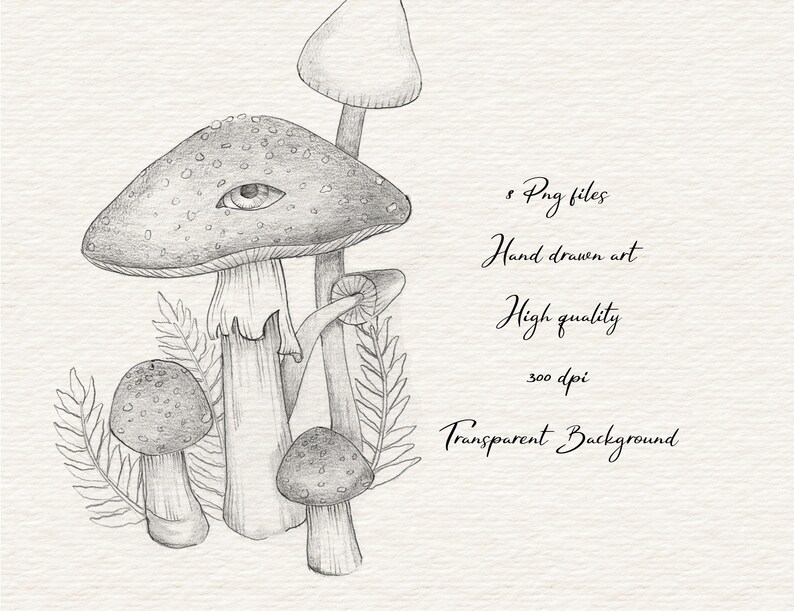 8 Png files
Hand drawn art
High quality
300 dpi
Transparent Background